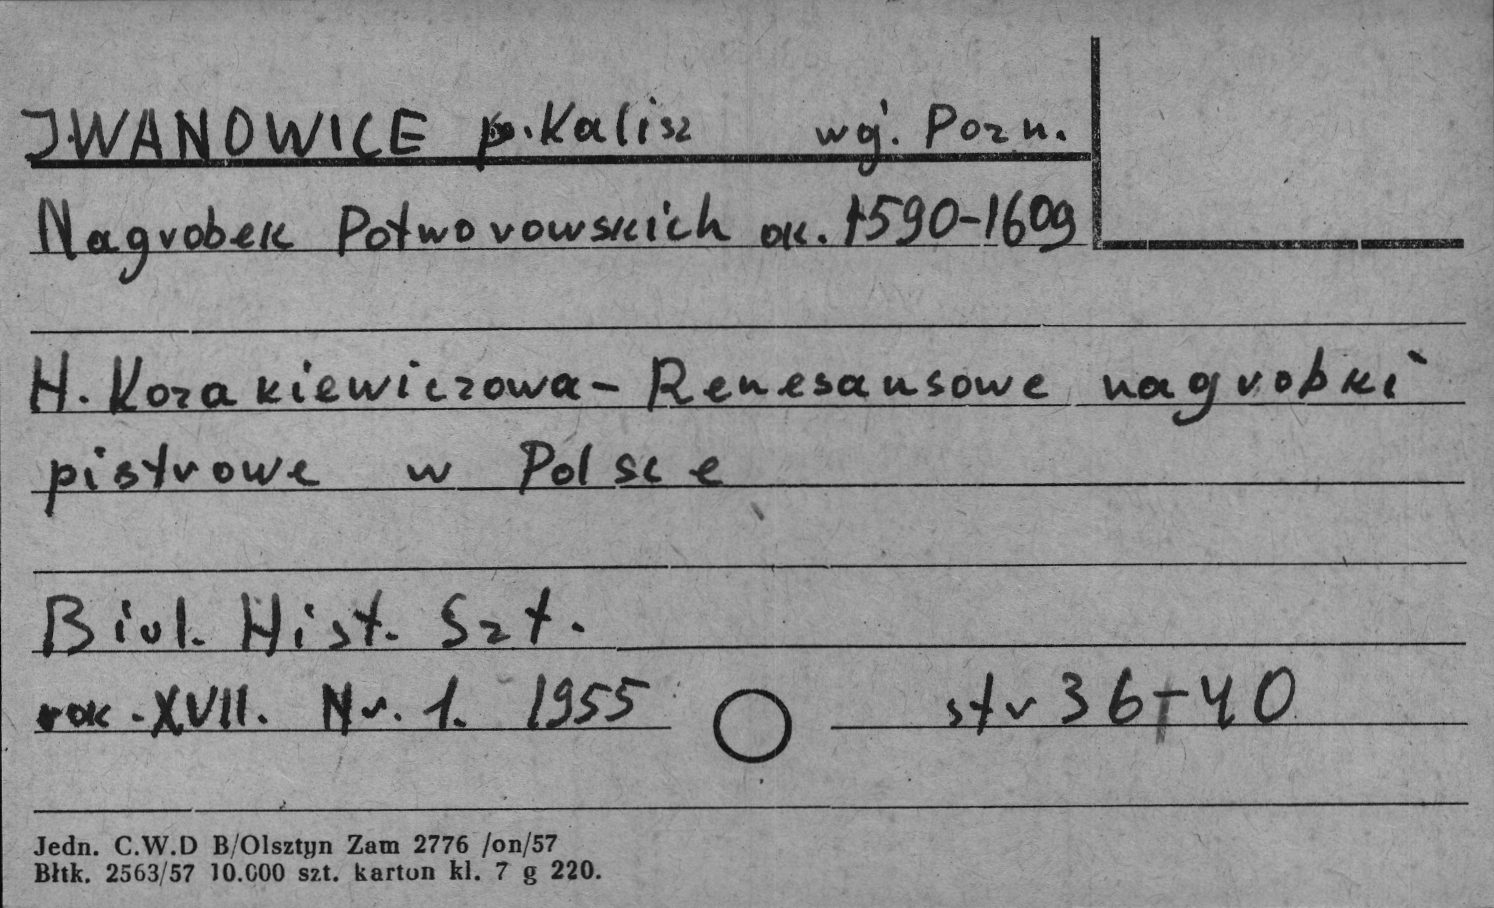 IWANOWICE p. Kalisz woj. Pozn.
Nagrobek Potworowskich ok. 1590-1609
H. Kozakiewiczowa - Renesansowe nagrobki
piętrowe w Polsce
Biul. Hist. Szt.
rok. XVII. Nr. 1. 1955 str 36-40
Jedn. C.W.D B/Olsztyn Zam 2776 /on/57
Błtk. 2563/57 10.000 szt. karton kl. 7 g 220.